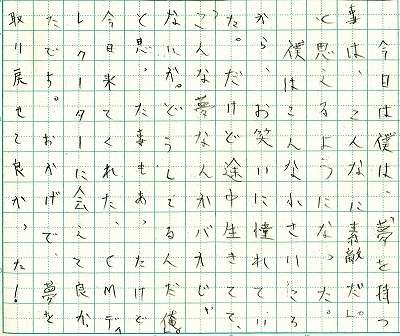 今日は僕は、夢を持つ
事は、こんなに素敵だ。
と思えるようになった。
僕はこんな小さいころ
から、お笑いに憧れてい
た。だけど途中生きてて、
こんな夢なんかバカじゃ
ないか。どうしてるんだ俺。
と思った事もあったけど
今日来てくれた、CMディ
レクターに会えて良かっ
たです。おかげで、夢を
取り戻せて良かった！